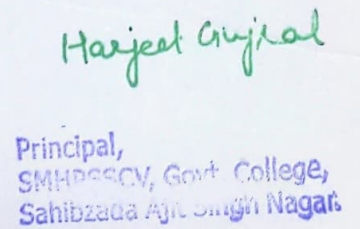 Harjeet Gujral
Principal,
Govt. College,
Sahibzada Ajit Singh Nagar.